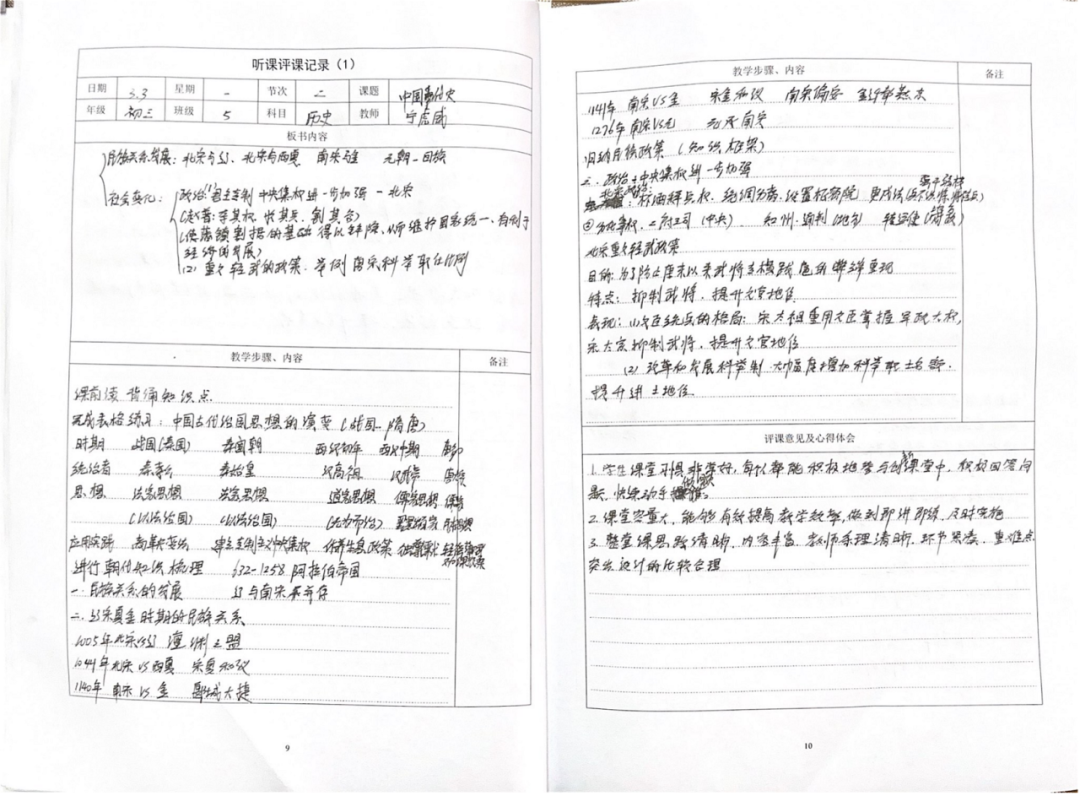 听课评课记录（1）
日期 3.3 星期 一 节次 二 课题 中国古代史
年级 初三 班级 5 科目 历史 教师
板书内容
民族关系发展：北宋与辽、北宋与西夏 南宋与金 元朝-回族
社会变化： 政治：(1)君主专制中央集权进一步加强-北宋
(赵普：李其权，收其兵，制其谷)
(使藩镇割据的基础得以铲除，从而维护国家统一，有利于
经济的发展)
(2) 重文轻武的政策，举例
教学步骤、内容 备注
课前读背诵知识点
完成表格练习：中国古代治国思想的演变（战国-隋唐）
时期 战国(秦国) 秦朝 西汉初年 西汉中期
统治者 秦孝公 秦始皇 汉高祖 汉武帝
思想 法家思想 法家思想 道家思想 儒家思想
(以法治国) (以法治国) (无为而治)
应用实践 商鞅变法 建立专制主义中央集权 休养生息政策
进行朝代知识梳理 632-1258 阿拉伯帝国
一、民族关系的发展 辽与南宋不并存
二、辽宋夏金时期的民族关系
1005年北宋VS辽 澶渊之盟
1041年北宋VS西夏 宋夏和议
1140年 南宋VS金 郾城大捷
9
教学步骤、内容 备注
1141年 南宋VS金 宋金和议 南宋偏安
1276年 南宋VS元 元灭南宋
归纳民族政策（知识框架）
二、政治：中央集权进一步加强
杯酒释兵权、
② 分化事权、二府三司（中央） 知州、通判(地方) 转运使
北宋重文轻武政策
目的：为了防止唐末以来武将专横跋扈的弊端重现
特点：抑制武将，提升文官地位
表现：(1)文臣统兵的格局：宋太祖重用文臣掌握军政大权，
宋太宗抑制武将，提升文官地位
(2) 改革和发展科举制 大幅度增加科举取士名额，
提升进士地位
评课意见及心得体会
1.学生课堂习惯非常好，每个人都能积极地参与到课堂中，积极回答问
题，快速动手做笔记。
2.课堂容量大，能够有效提高教学效率，做到即讲即练、及时实施
3.整堂课思路清晰，内容丰富，教师条理清晰，环节紧凑，重难点
突出 设计的比较合理
10